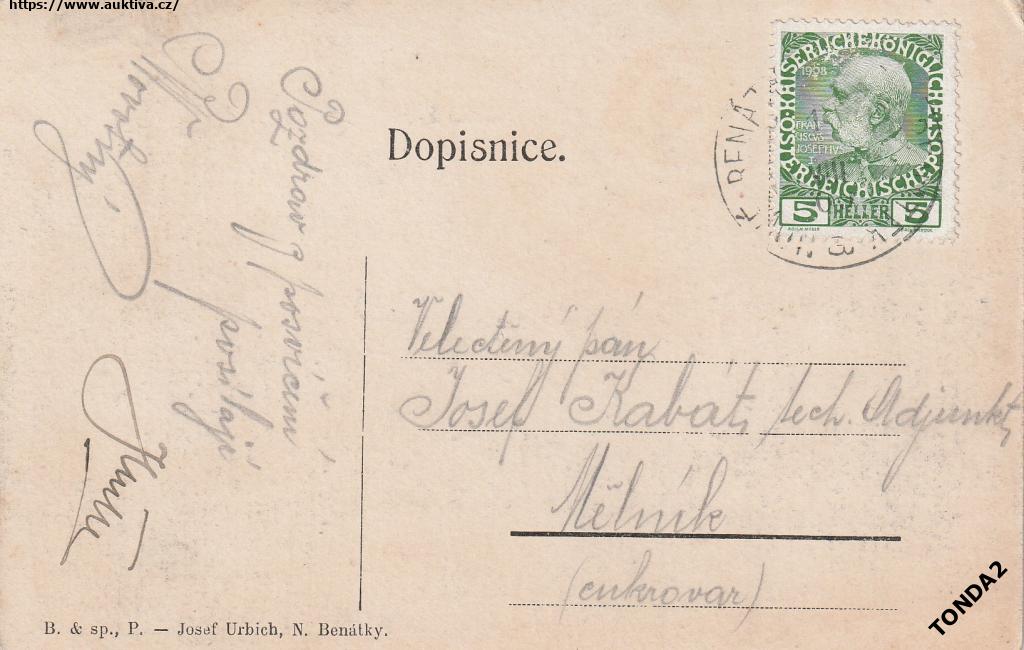 https://www.auktiva.cz/
Dopisnice.
KAISERLICHE KÖNIGLICHE
ÖSTERREICHISCHE POST
1908
5 HELLER 5
BENÁT
Pozdrav z posvícení
posílají
Velectěný pán
Josef Kabát, tech. Adjunkt,
Mělník
(cukrovar)
B. & sp., P. — Josef Urbich, N. Benátky.
TONDA2